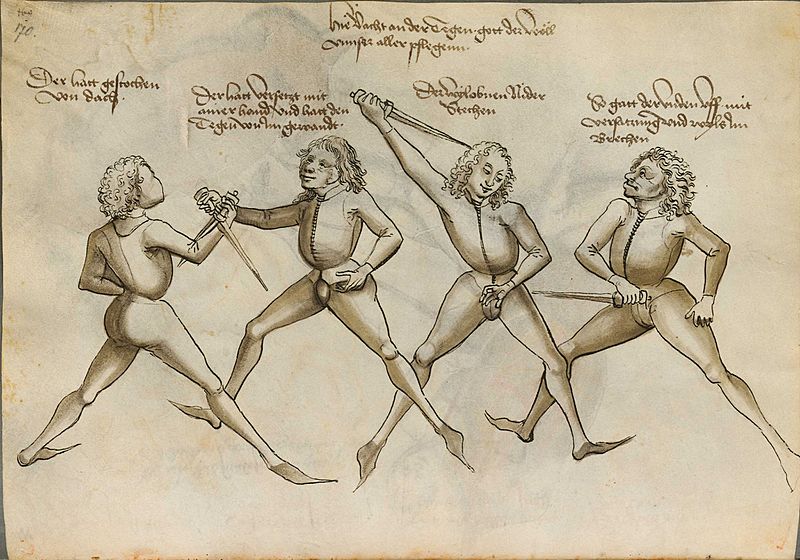 170.
hie vacht an der Tegen gott der Wöll
vnnser aller pflegenn.
Der hatt gestochen
von dach.
Der hatt versetzt mit
ainer hand vnd hatt den
Tegen vm gewandt.
Der will obnen Nider
Stechen
So gatt der vnden vff mit
versatzung vnd wyls Im
Brechen